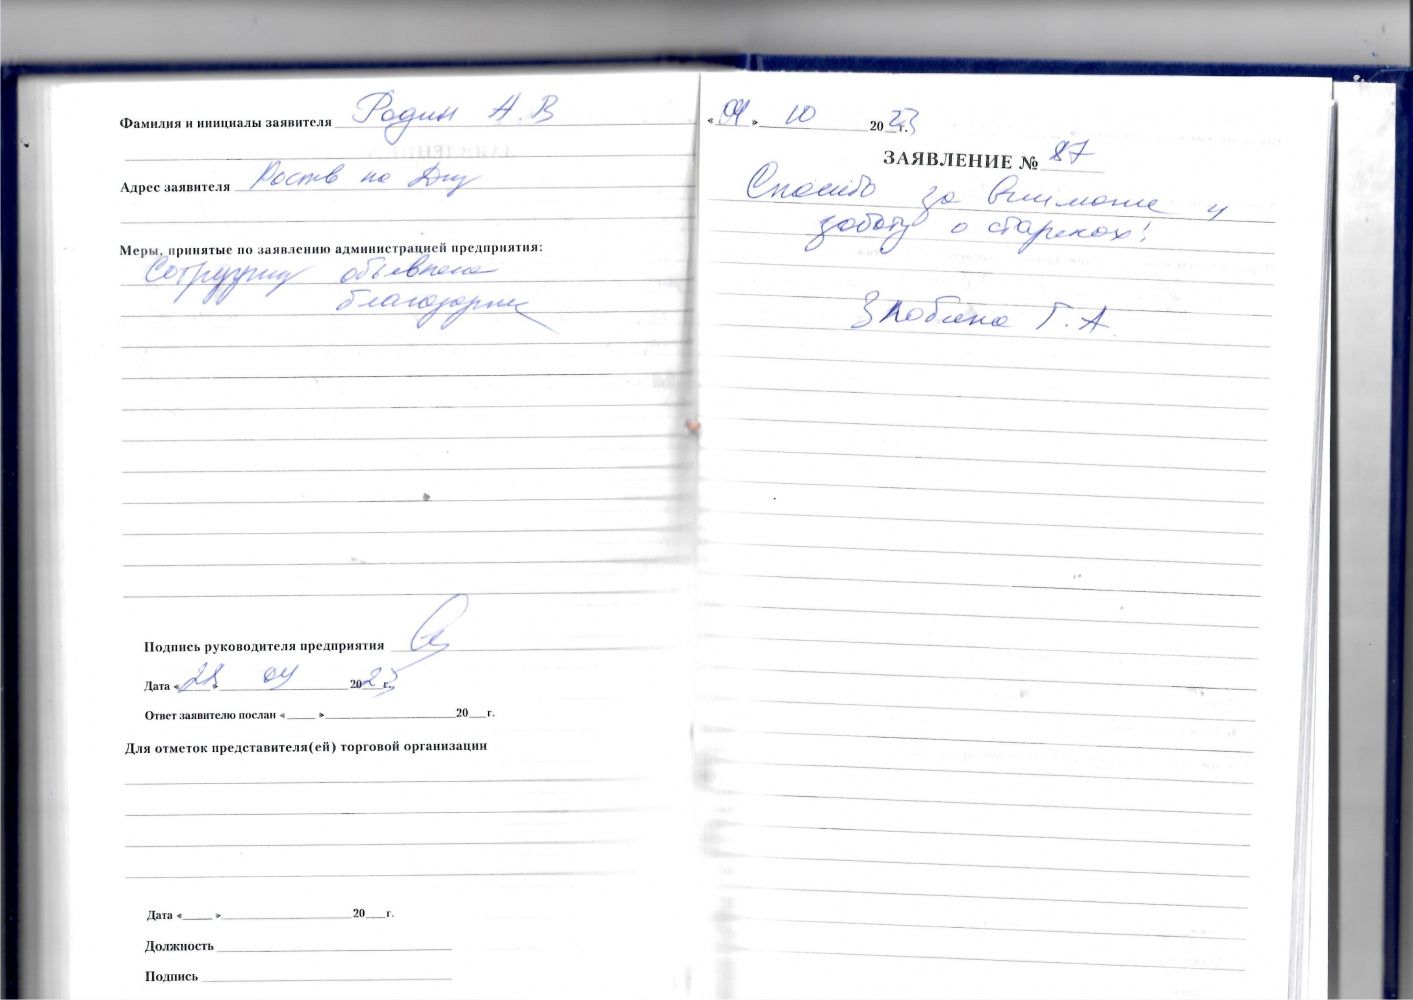 Фамилия и инициалы заявителя Родин А.В
Адрес заявителя Роств на Дну
Меры, принятые по заявлению администрацией предприятия:
Сотруднику объявлена
благодарность
Подпись руководителя предприятия
Дата « » 04 20 23 г.
Ответ заявителю послан « » 20 г.
Для отметок представителя(ей) торговой организации
Дата « » 20 г.
Должность
Подпись
« 04 » 10 20 23 г.
ЗАЯВЛЕНИЕ № 87
Спасибо за внимание и
заботу о стариках!
Злобина Г.А.